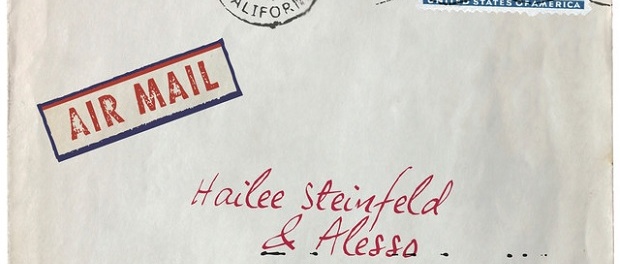 CALIFORN
UNITED STATES OF AMERICA
AIR MAIL
Hailee Steinfeld
& Alesso